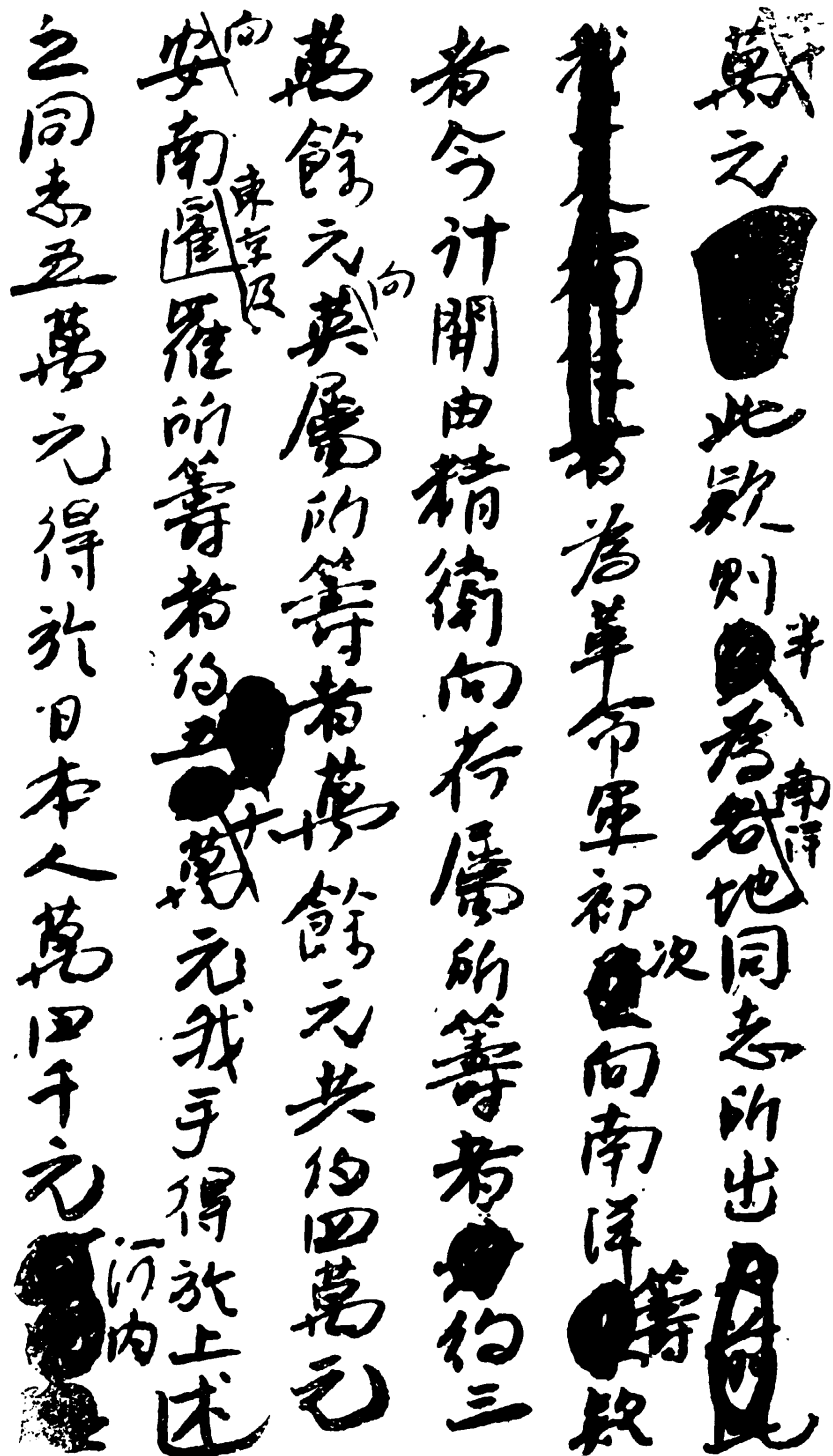 萬元此款則半為南洋各地同志所出
為革命軍初次向南洋籌款
者今計開由精衛向荷屬所籌者約三
萬餘元向英屬所籌者萬餘元共約四萬元
向安南東京及暹羅所籌者約五六萬元我手得於上述
之同志五萬元得於日本人萬四千元河內